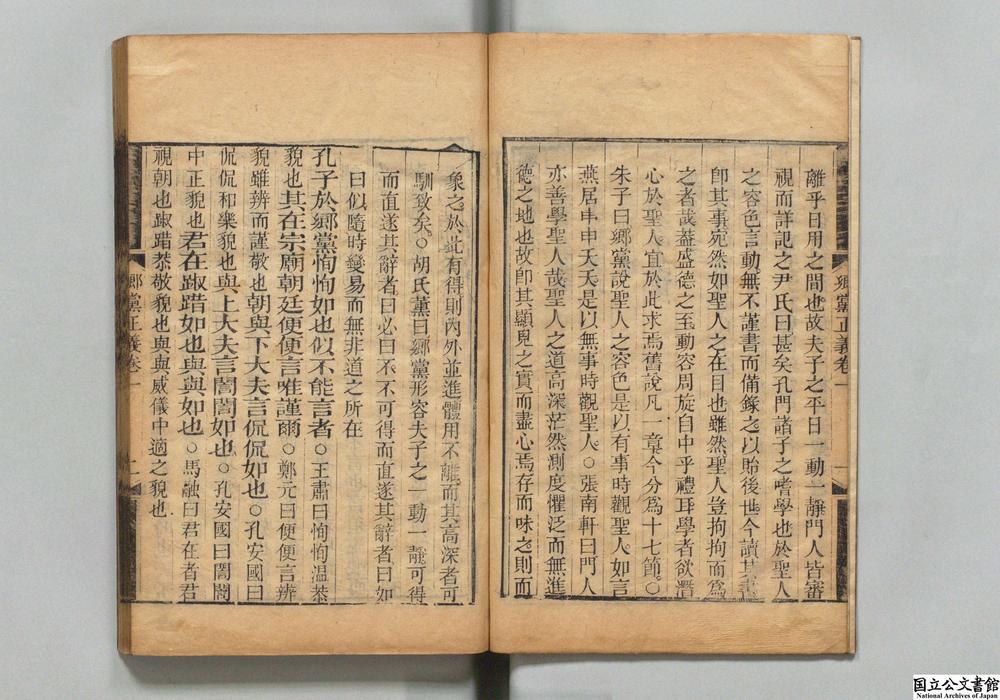 離乎日用之間也故夫子之平日一動一靜門人皆審
視而詳記之尹氏曰甚矣孔門諸子之嗜學也於聖人
之容色言動無不謹書而備錄之以貽後世今讀其書
卽其事宛然如聖人之在目也雖然聖人豈拘拘而爲
之者哉葢盛德之至動容周旋自中乎禮耳學者欲潛
心於聖人宜於此求焉舊說凡一章今分爲十七節○
朱子曰鄉黨說聖人之容色是以有事時觀聖人如言
燕居申申夭夭是以無事時觀聖人○張南軒曰門人
亦善學聖人哉聖人之道高深茫然測度懼泛而無進
德之地也故卽其顯見之實而盡心焉存而味之則而
鄉黨正義卷一
象之於此有得則內外並進體用不離而其高深者可
馴致矣○胡氏薰曰鄉黨形容夫子之一動一靜可得
而直遂其辭者曰必曰不不可得而直遂其辭者曰如
曰似隨時變易而無非道之所在
孔子於鄉黨恂恂如也似不能言者○王肅曰恂恂温恭
貌也其在宗廟朝廷便便言唯謹爾○鄭元曰便便言辨
貌雖辨而謹敬也朝與下大夫言侃侃如也○孔安國曰
侃侃和樂貌也與上大夫言誾誾如也○孔安國曰誾誾
中正貌也君在踧踖如也與與如也○馬融曰君在者君
視朝也踧踖恭敬貌也與與威儀中適之貌也
鄉黨正義卷一
二
国立公文書館
National Archives of Japan